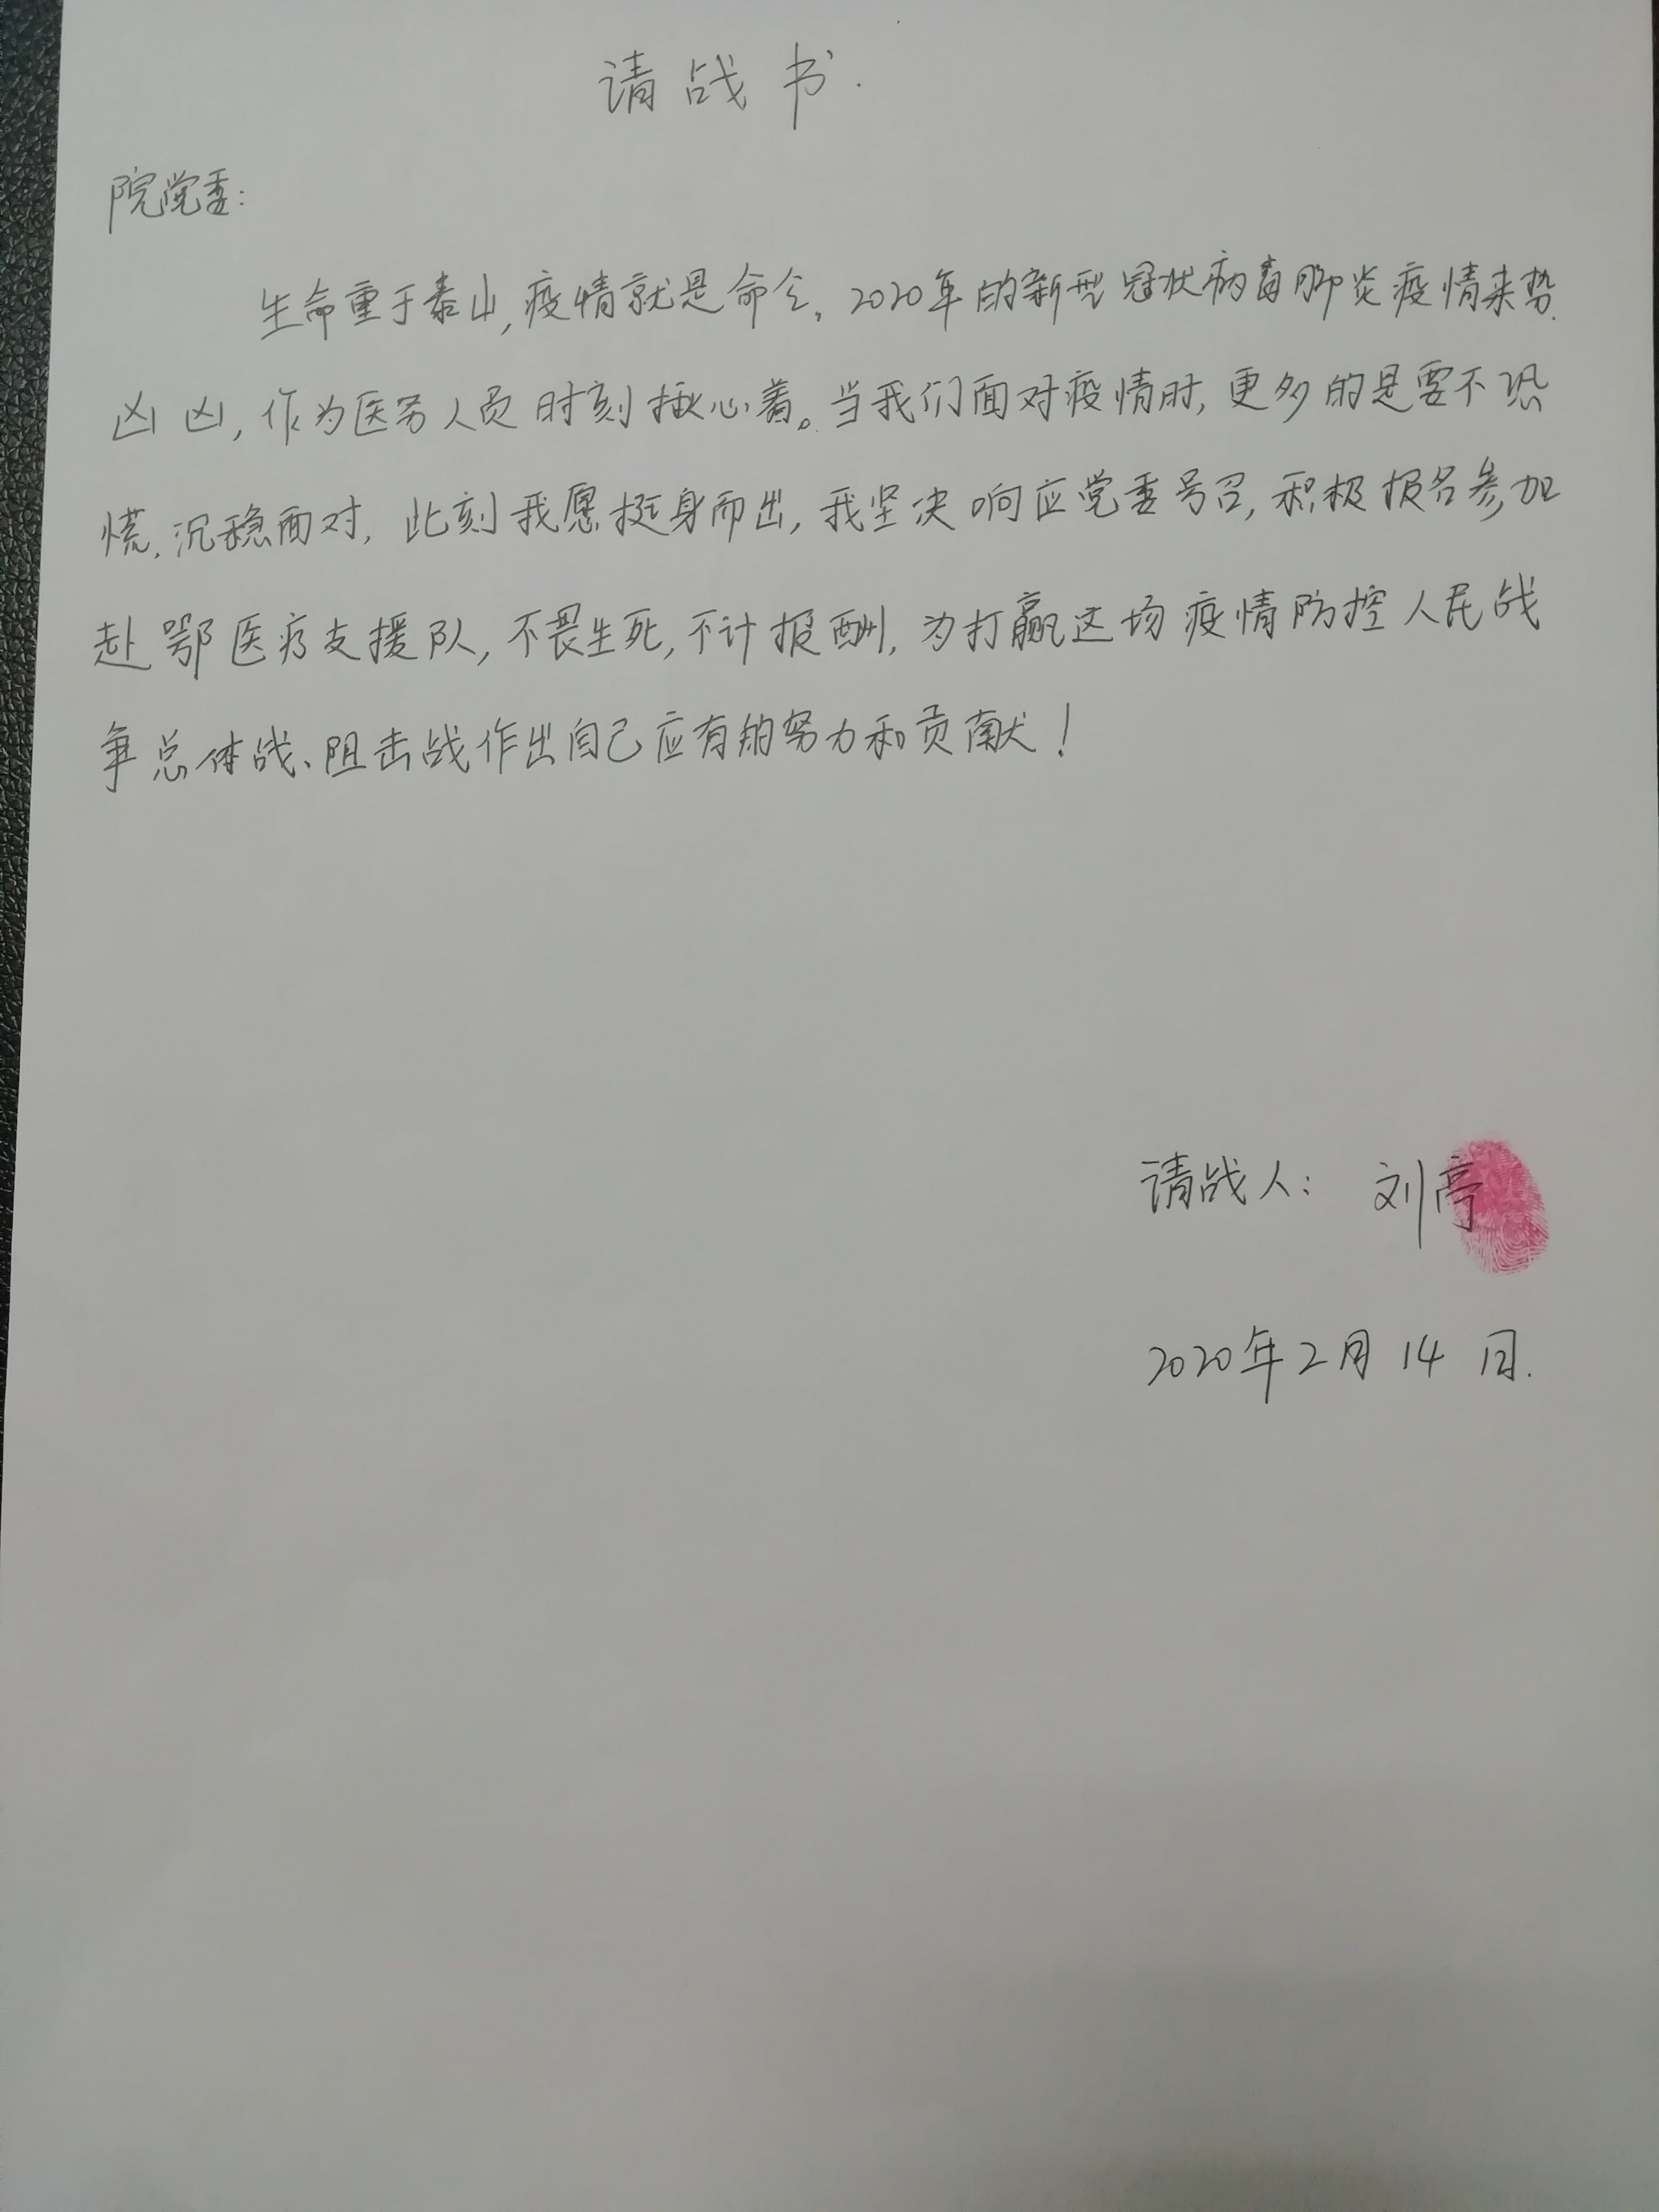 请战书.
院党委:
生命重于泰山,疫情就是命令。2020年的新型冠状病毒肺炎疫情来势
凶凶,作为医务人员时刻揪心着。当我们面对疫情时,更多的是要不恐
慌.沉稳面对,此刻我愿挺身而出,我坚决响应党委号召,积极报名参加
赴鄂医疗支援队,不畏生死,不计报酬,为打赢这场疫情防控人民战
争总体战、阻击战作出自己应有的努力和贡献!
请战人: 刘亭
2020年2月14日.